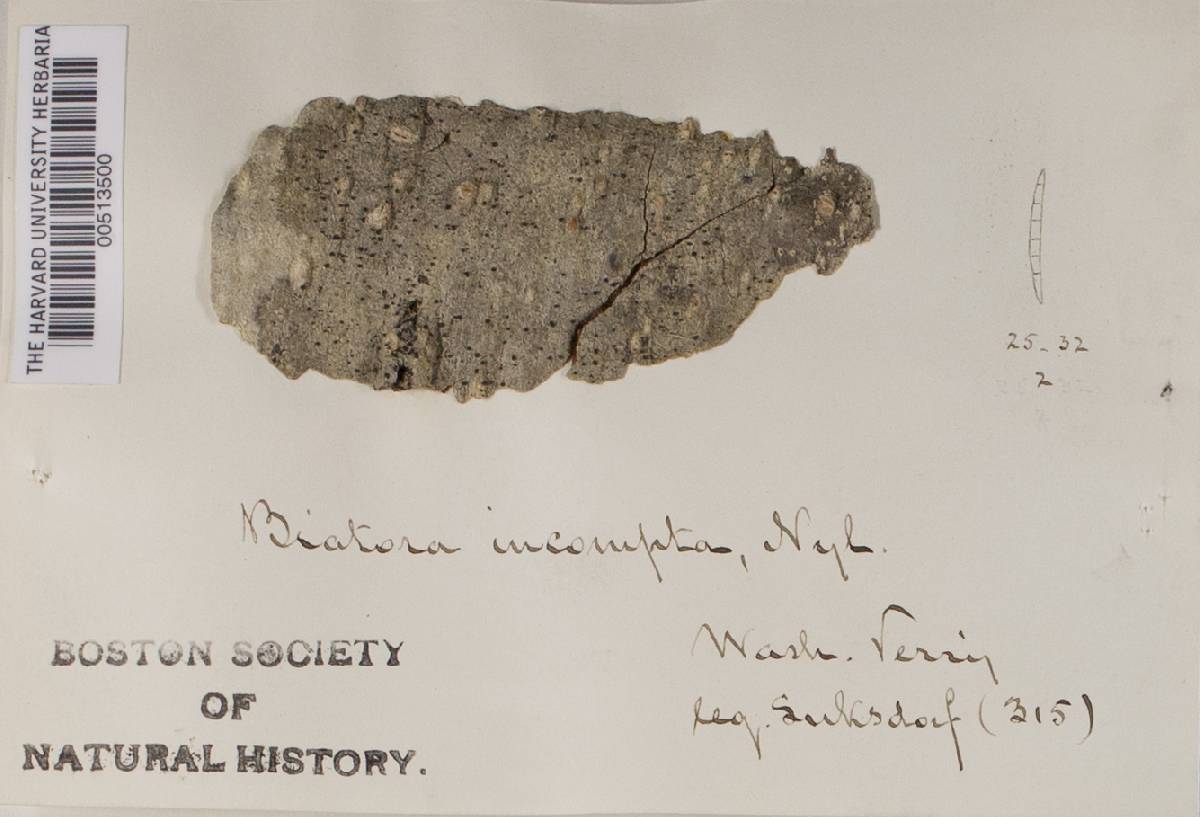 THE HARVARD UNIVERSITY HERBARIA
00513500
25-32
2
Biatora incompta, Nyl.
Wash. Terriy
leg. Suksdorf (315)
BOSTON SOCIETY
OF
NATURAL HISTORY.